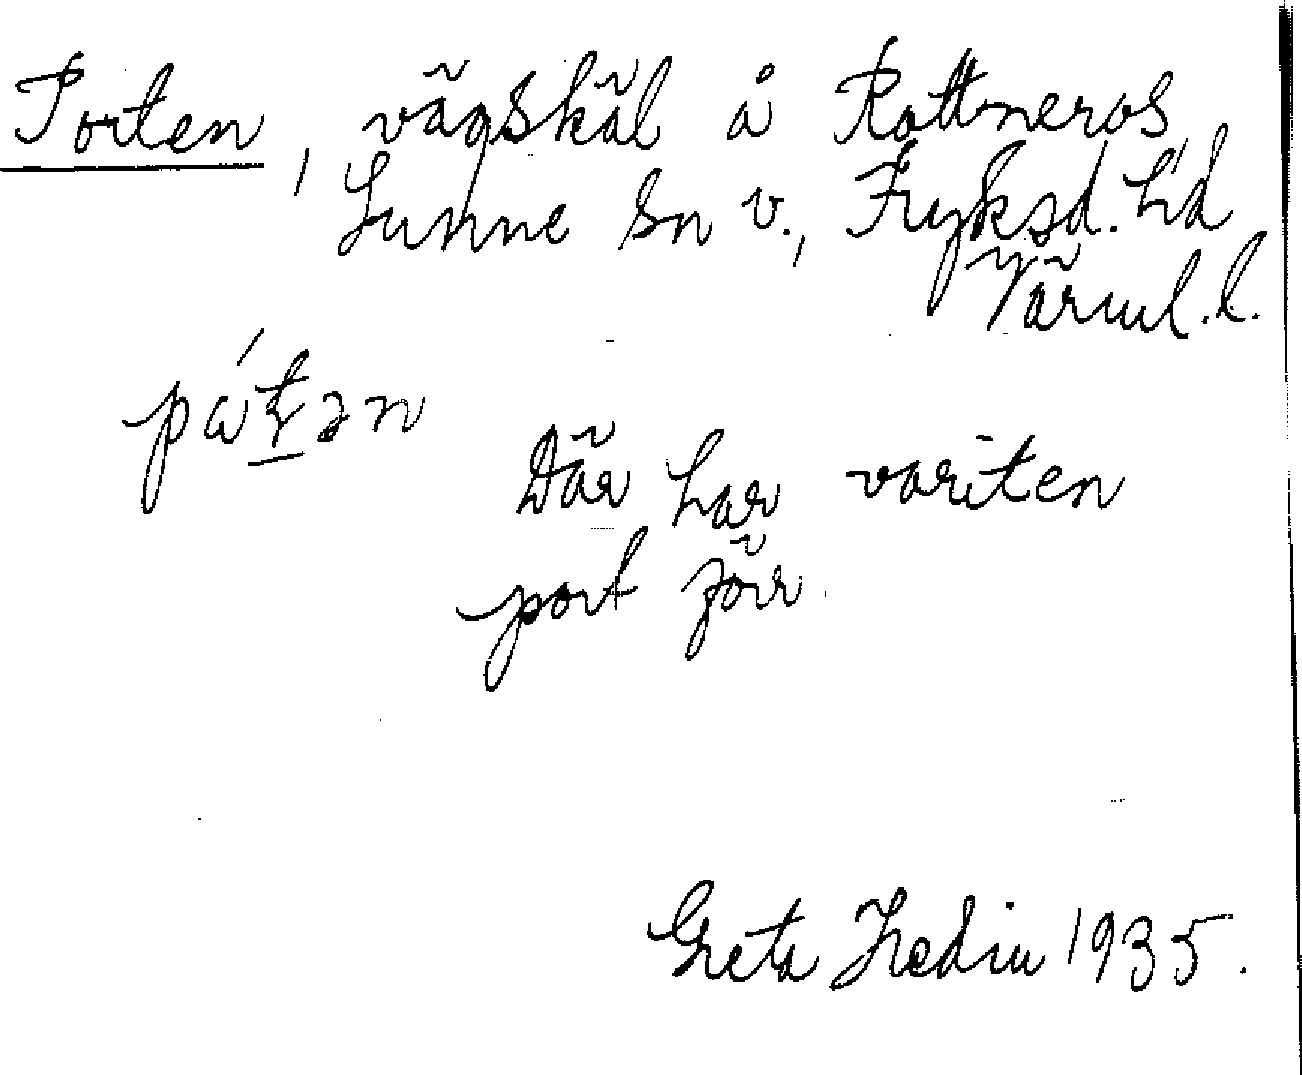 Porten, vägskäl å Rottneros,
Sunne sn v., Fryksd. hd
Värml. l.
Där har varit en
port förr.
Greta Hedin 1935.